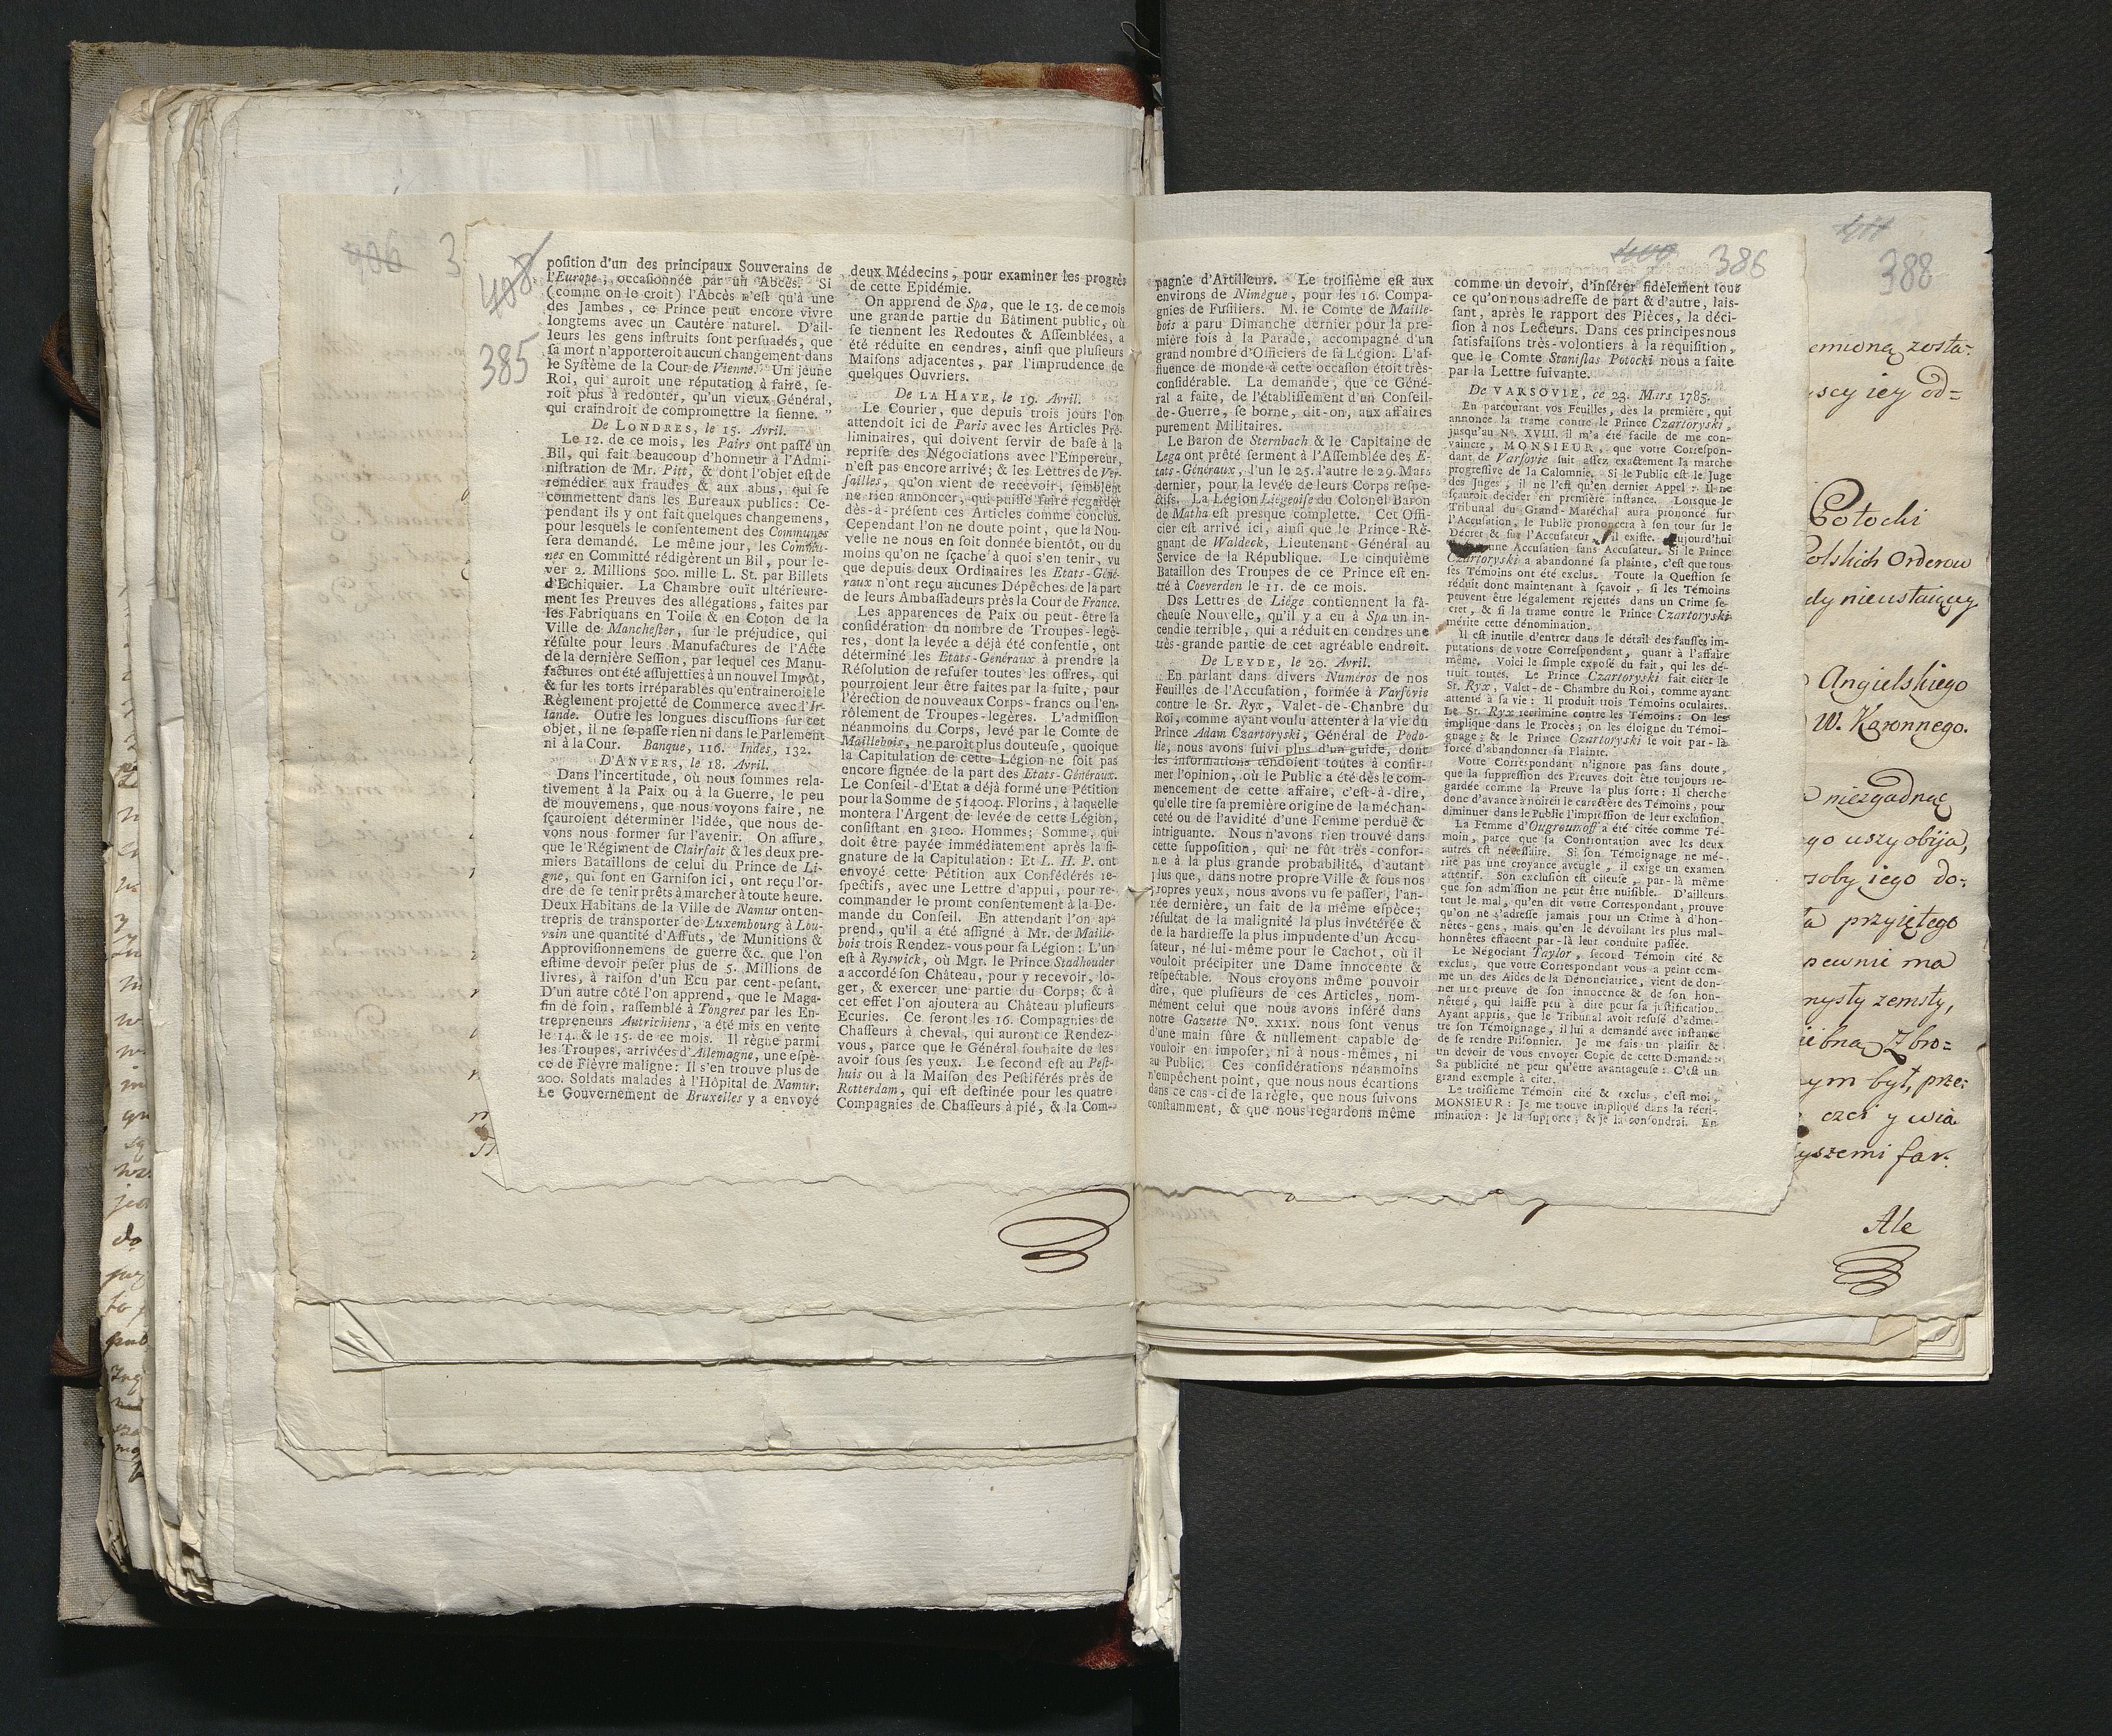 408
385
position d'un des principaux Souverains de
l'Europe, occasionnée par un Abcès. Si
(comme on le croit) l'Abcès n'est qu'à une
des Jambes, ce Prince peut encore vivre
longtems avec un Cautére naturel. D'ail-
leurs les gens instruits sont persuadés, que
sa mort n'apporteroit aucun changement dans
le Systême de la Cour de Vienne. Un jeune
Roi, qui auroit une réputation à faire, se-
roit plus à redouter, qu'un vieux Général,
qui craindroit de compromettre la sienne. "
De LONDRES, le 15. Avril.
Le 12. de ce mois, les Pairs ont passé un
Bil, qui fait beaucoup d'honneur à l'Admi-
nistration de Mr. Pitt, & dont l'objet est de
remédier aux fraudes & aux abus, qui se
commettent dans les Bureaux publics: Ce-
pendant ils y ont fait quelques changemens,
pour lesquels le consentement des Communes
sera demandé. Le même jour, les Commu-
nes en Committé rédigèrent un Bil, pour le-
ver 2. Millions 500. mille L. St. par Billets
d'Echiquier. La Chambre ouït ultérieure-
ment les Preuves des allégations, faites par
les Fabriquans en Toile & en Coton de la
Ville de Manchester, sur le préjudice, qui
résulte pour leurs Manufactures de l'Acte
de la dernière Session, par lequel ces Manu-
factures ont été assujetties à un nouvel Impôt,
& sur les torts irréparables qu'entraineroit le
Règlement projetté de Commerce avec l'Ir-
lande. Outre les longues discussions sur cet
objet, il ne se passe rien ni dans le Parlement
ni à la Cour. Banque, 116. Indes, 132.
D'ANVERS, le 18. Avril.
Dans l'incertitude, où nous sommes rela-
tivement à la Paix ou à la Guerre, le peu
de mouvemens, que nous voyons faire, ne
sçauroient déterminer l'idée, que nous de-
vons nous former sur l'avenir. On assure,
que le Régiment de Clairfait & les deux pre-
miers Bataillons de celui du Prince de Li-
gne, qui sont en Garnison ici, ont reçu l'or-
dre de se tenir prêts à marcher à toute heure.
Deux Habitans de la Ville de Namur ont en-
trepris de transporter de Luxembourg à Lou-
vain une quantité d'Affuts, de Munitions &
Approvisionnemens de guerre &c. que l'on
estime devoir peser plus de 5. Millions de
livres, à raison d'un Ecu par cent-pesant.
D'un autre côté l'on apprend, que le Maga-
sin de foin, rassemblé à Tongres par les En-
trepreneurs Autrichiens, a été mis en vente
le 14. & le 15. de ce mois. Il règne parmi
les Troupes, arrivées d'Allemagne, une espè-
ce de Fièvre maligne: Il s'en trouve plus de
200. Soldats malades à l'Hôpital de Namur.
Le Gouvernement de Bruxelles y a envoyé
deux Médecins, pour examiner les progrès
de cette Epidémie.
On apprend de Spa, que le 13. de ce mois
une grande partie du Bâtiment public, où
se tiennent les Redoutes & Assemblées, a
été réduite en cendres, ainsi que plusieurs
Maisons adjacentes, par l'imprudence de
quelques Ouvriers.
De LA HAYE, le 19. Avril.
Le Courier, que depuis trois jours l'on
attendoit ici de Paris avec les Articles Pré-
liminaires, qui doivent servir de base à la
reprise des Négociations avec l'Empereur,
n'est pas encore arrivé; & les Lettres de Ver-
sailles, qu'on vient de recevoir, semblent
ne rien annoncer, qui puisse faire regarder
dès-à-présent ces Articles comme conclus.
Cependant l'on ne doute point, que la Nou-
velle ne nous en soit donnée bientôt, ou du
moins qu'on ne sçache à quoi s'en tenir, vu
que depuis deux Ordinaires les Etats-Géné-
raux n'ont reçu aucunes Dépêches de la part
de leurs Ambassadeurs près la Cour de France.
Les apparences de Paix ou peut-être la
considération du nombre de Troupes-legè-
res, dont la levée a déjà été consentie, ont
déterminé les Etats-Généraux à prendre la
Résolution de refuser toutes les offres, qui
pourroient leur être faites par la suite, pour
l'érection de nouveaux Corps-francs ou l'en-
rôlement de Troupes-legères. L'admission
néanmoins du Corps, levé par le Comte de
Maillebois, ne paroît plus douteuse, quoique
la Capitulation de cette Légion ne soit pas
encore signée de la part des Etats-Généraux.
Le Conseil-d'Etat a déjà formé une Pétition
pour la Somme de 514004. Florins, à laquelle
montera l'Argent de levée de cette Légion,
consistant en 3100. Hommes; Somme, qui
doit être payée immédiatement après la si-
gnature de la Capitulation: Et L. H. P. ont
envoyé cette Pétition aux Confédérés re-
spectifs, avec une Lettre d'appui, pour re-
commander le promt consentement à la De-
mande du Conseil. En attendant l'on ap-
prend, qu'il a été assigné à Mr. de Maille-
bois trois Rendez-vous pour sa Légion: L'un
est à Ryswick, où Mgr. le Prince Stadhouder
a accordé son Château, pour y recevoir, lo-
ger, & exercer une partie du Corps; & à
cet effet l'on ajoutera au Château plusieurs
Ecuries. Ce seront les 16. Compagnies de
Chasseurs à cheval, qui auront ce Rendez-
vous, parce que le Général souhaite de les
avoir sous ses yeux. Le second est au Pest-
huis ou à la Maison des Pestiférés près de
Rotterdam, qui est destinée pour les quatre
Compagnies de Chasseurs à pié, & la Com-
386
pagnie d'Artilleurs. Le troisième est aux
environs de Nimègue, pour les 16. Compa-
gnies de Fusiliers. M. le Comte de Maille-
bois a paru Dimanche dernier pour la pre-
mière fois à la Parade, accompagné d'un
grand nombre d'Officiers de sa Légion. L'af-
fluence de monde à cette occasion étoit très-
considérable. La demande, que ce Géné-
ral a faite, de l'établissement d'un Conseil-
de-Guerre, se borne, dit-on, aux affaires
purement Militaires.
Le Baron de Sternbach & le Capitaine de
Lega ont prêté serment à l'Assemblée des E-
tats-Généraux, l'un le 25. l'autre le 29. Mars
dernier, pour la levée de leurs Corps respe-
ctifs. La Légion Liégeoise du Colonel Baron
de Matha est presque complette. Cet Offi-
cier est arrivé ici, ainsi que le Prince-Ré-
gnant de Waldeck, Lieutenant-Général au
Service de la République. Le cinquième
Bataillon des Troupes de ce Prince est en-
tré à Coeverden le 11. de ce mois.
Des Lettres de Liége contiennent la fâ-
cheuse Nouvelle, qu'il y a eu à Spa un in-
cendie terrible, qui a réduit en cendres une
très-grande partie de cet agréable endroit.
De LEYDE, le 20. Avril.
En parlant dans divers Numéros de nos
Feuilles de l'Accusation, formée à Varsovie
contre le Sr. Ryx, Valet-de-Chanbre du
Roi, comme ayant voulu attenter à la vie du
Prince Adam Czartoryski, Général de Podo-
lie, nous avons suivi plus d'un guide, dont
les informations tendoient toutes à confir-
mer l'opinion, où le Public a été dès le com-
mencement de cette affaire, c'est-à-dire,
qu'elle tire sa première origine de la méchan-
ceté ou de l'avidité d'une Femme perduë &
intriguante. Nous n'avons rien trouvé dans
cette supposition, qui ne fût très-confor-
me à la plus grande probabilité, d'autant
plus que, dans notre propre Ville & sous nos
propres yeux, nous avons vu se passer, l'an-
née dernière, un fait de la même espèce;
résultat de la malignité la plus invétérée &
de la hardiesse la plus impudente d'un Accu-
sateur, né lui-même pour le Cachot, où il
vouloit précipiter une Dame innocente &
respectable. Nous croyons même pouvoir
dire, que plusieurs de ces Articles, nom-
mément celui que nous avons inséré dans
notre Gazette No. XXIX. nous sont venus
d'une main sûre & nullement capable de
vouloir en imposer, ni à nous-mêmes, ni
au Public. Ces considérations néanmoins
n'empêchent point, que nous nous écartions
dans ce cas-ci de la règle, que nous suivons
constamment, & que nous regardons même
comme un devoir, d'insérer fidèlement tout
ce qu'on nous adresse de part & d'autre, lais-
sant, après le rapport des Pièces, la déci-
sion à nos Lecteurs. Dans ces principes nous
satisfaisons très-volontiers à la requisition,
que le Comte Stanislas Potocki nous a faite
par la Lettre suivante.
De VARSOVIE, ce 23. Mars 1785.
En parcourant vos Feuilles, dès la première, qui
annonce la trame contre le Prince Czartoryski,
jusqu'au No. XVIII. il m'a été facile de me con-
vaincre, MONSIEUR, que votre Correspon-
dant de Varsovie suit assez exactement la marche
progressive de la Calomnie. Si le Public est le Juge
des Juges, il ne l'est qu'en dernier Appel: Il ne
sçauroit décider en première instance. Lorsque le
Tribunal du Grand-Maréchal aura prononcé sur
l'Accusation, le Public prononcera à son tour sur le
Décret & sur l'Accusateur s'il existe. Aujourd'hui
une Accusation sans Accusateur. Si le Prince
Czartoryski a abandonné sa plainte, c'est que tous
ses Témoins ont été exclus. Toute la Question se
réduit donc maintenant à sçavoir, si les Témoins
peuvent être légalement rejettés dans un Crime se-
cret, & si la trame contre le Prince Czartoryski
mérite cette dénomination.
Il est inutile d'entrer dans le détail des fausses im-
putations de votre Correspondant, quant à l'affaire
même. Voici le simple exposé du fait, qui les dé-
truit toutes. Le Prince Czartoryski fait citer le
Sr. Ryx, Valet-de-Chambre du Roi, comme ayant
attenté à sa vie: Il produit trois Témoins oculaires.
Le Sr. Ryx recrimine contre les Témoins: On les
implique dans le Procès; on les éloigne du Témoi-
gnage; & le Prince Czartoryski se voit par-là
forcé d'abandonner sa Plainte.
Votre Correspondant n'ignore pas sans doute,
que la suppression des Preuves doit être toujours re-
gardée comme la Preuve la plus forte: Il cherche
donc d'avance à noircir le caractère des Témoins, pour
diminuer dans le Public l'impression de leur exclusion.
La Femme d'Ougroumoff a été citée comme Té-
moin, parce que sa Confrontation avec les deux
autres est nécessaire. Si son Témoignage ne mé-
rite pas une croyance aveugle, il exige un examen
attentif. Son exclusion est odieuse, par-là même
que son admission ne peut être nuisible. D'ailleurs
tout le mal, qu'en dit votre Correspondant, prouve
qu'on ne s'adresse jamais pour un Crime à d'hon-
nêtes-gens, mais qu'en le dévoilant les plus mal-
honnêtes effacent par-là leur conduite passée.
Le Négociant Taylor, second Témoin cité &
exclus, que votre Correspondant vous a peint com-
me un des Aides de la Dénonciatrice, vient de don-
ner une preuve de son innocence & de son hon-
nêteté, qui laisse peu à dire pour sa justification.
Ayant appris, que le Tribunal avoit refusé d'admet-
tre son Témoignage, il lui a demandé avec instance
de se rendre Prisonnier. Je me fais un plaisir &
un devoir de vous envoyer Copie de cette Demande:
Sa publicité ne peut qu'être avantageuse: C'est un
grand exemple à citer.
Le troisième Témoin cité & exclus, c'est moi,
MONSIEUR: Je me trouve impliqué dans la récri-
mination: Je la supporte, & je la confondrai. En
406 3
388
emioną zosta-
scy iey od=
Potocki
Polskich Orderow
dy nieustaiący
Angielskiego
W. Koronnego.
niezgadnąć
go uszy obija,
osoby iego do-
przyiętego
pewnie ma
mysty zemsty,
Zbro=
ym był, prze-
czci y wia
yszemi far.
Ale